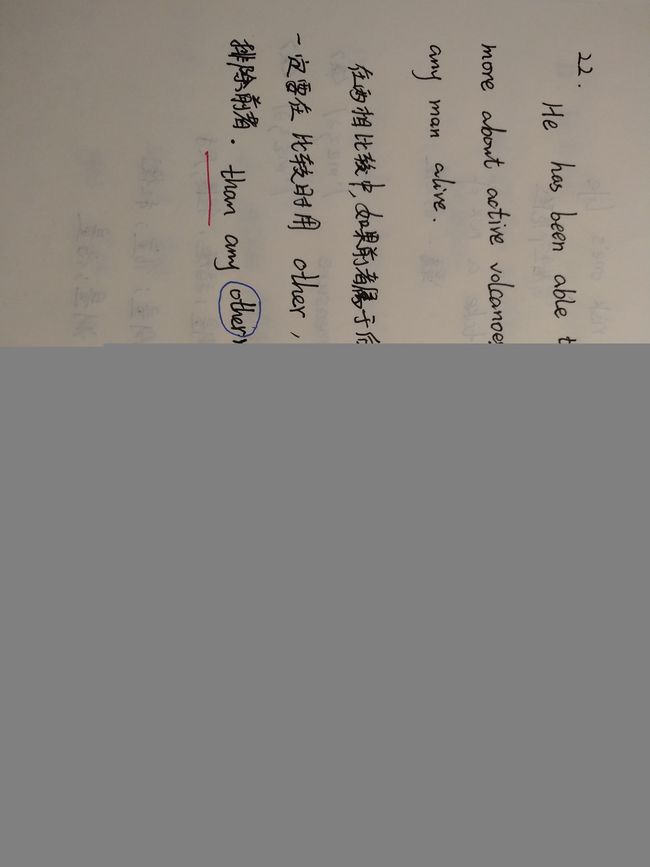 22.
He has been able
more about active volcanoes
any man alive.
在两相比较中，如果前者属于
一定要在比较时用 other，
排除前者. than any other